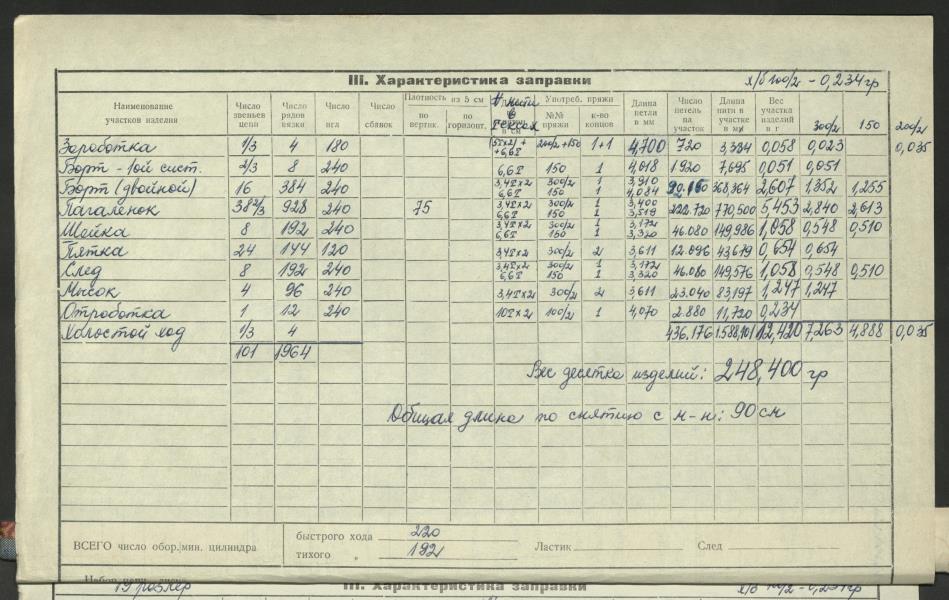 III. Характеристика заправки х/б 100/2 - 0,234 гр
Наименование участков изделия Число звеньев цепи Число рядов вязки Число игл Число сбавок Плотность из 5 см по вертик. по горизонт. в тексах Употреб. пряжи №№ пряжи к-во концов Длина петли в мм Число петель на участок Длина нити в участке в мм Вес участка изделий в г 300/2 150 200/2
Заработка 1/3 4 180 +6,6Т 200/2+150 1+1 4,700 720 3,384 0,058 0,023 0,035
Борт - 1ой сист. 2/3 8 240 6,6Т 150 1 4,018 1920 7,695 0,051 0,051
Борт (двойной) 16 384 240 3,4Тх2 300/2 1 3,910 368,364 2,607 1,352 1,255
6,6Т 150 1 4,084
Пагаленок 38 2/3 928 240 75 3,4Тх2 300/2 1 3,400 222.720 770,500 5,453 2,840 2,613
6,6Т 150 1 3,519
Шейка 8 192 240 3,4Тх2 300/2 1 3,172 46.080 149,986 1,058 0,548 0,510
6,6Т 150 1 3,320
Пятка 24 144 120 3,4Тх2 300/2 2 3,611 12.096 43,679 0,654 0,654
След 8 192 240 3,4Тх2 300/2 1 3,172 46.080 149,576 1,058 0,548 0,510
6,6Т 150 1 3,320
Мысок 4 96 240 3,4Тх2 300/2 2 3,611 23.040 83,197 1,247 1,247
Отработка 1 12 240 10Тх2 100/2 1 4,070 2.880 11,720 0,234
Холостой ход 1/3 4 436.176 1.588,101 12,420 7,263 4,888 0,035
101 1964
Вес десятка изделий: 248,400 гр
Общая длина по снятию с м-н: 90 см
ВСЕГО число обор./мин. цилиндра быстрого хода 220
тихого „ 192 Ластик След
19 размер III. Характеристика заправки х/б